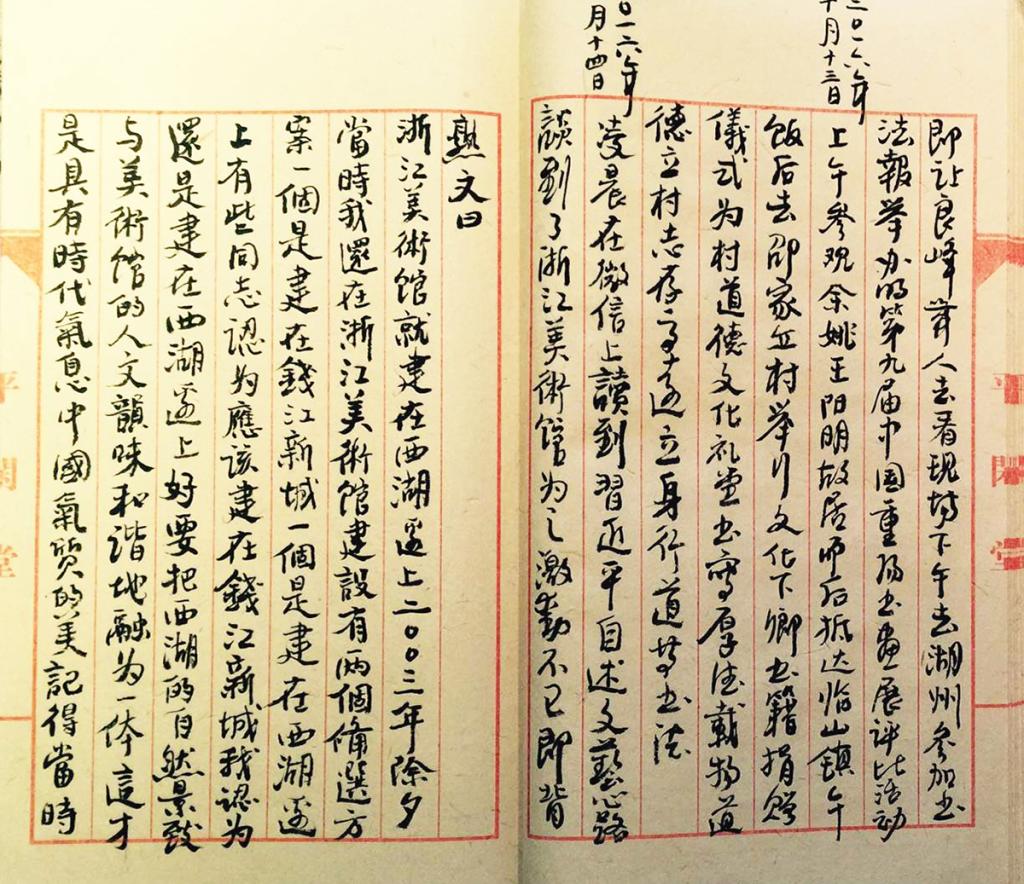 二〇一六年
十月十三日
〇一六年
月十四日
即让良峰等人去看现场下午去湖州参加书
法報举办的第九届中国重阳书画展评比活动
上午参观余姚王阳明故居而后抵达临山镇午
飯后去邵家丘村举行文化下鄉书籍捐赠
儀式为村道德文化礼堂书写厚德載物道
德立村志存高远立身行道等书法
凌晨在微信上讀到習近平自述文藝心路
談到了浙江美術馆为之激動不已即背
熟文曰
浙江美術馆就建在西湖邊上二〇〇三年除夕
當時我還在浙江美術館建設有兩個備選方
案一個是建在錢江新城一個是建在西湖邊
上有些同志認为應該建在錢江新城我認为
還是建在西湖邊上好要把西湖的自然景致
与美術館的人文韻味和谐地融为一体這才
是具有時代氣息中國氣质的美記得當時
平閑堂
閑堂